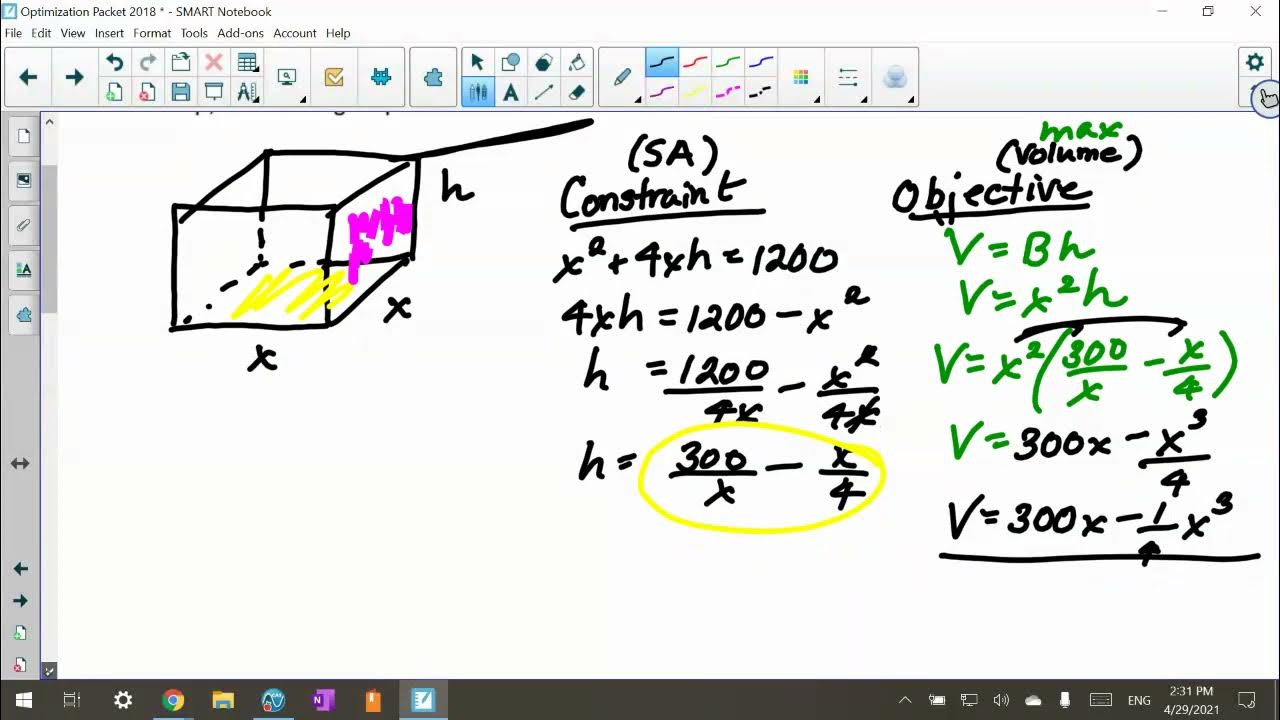 Optimization Packet 2018 * - SMART Notebook
File Edit View Insert Format Tools Add-ons Account Help
h
x
x
(SA)
Constraint
x² + 4xh = 1200
4xh = 1200 - x²
h = 1200/4x - x²/4x
h = 300/x - x/4
max
(Volume)
Objective
V = Bh
V = x²h
V = x²(300/x - x/4)
V = 300x - x³/4
V = 300x - 1/4 x³
ENG
2:31 PM
4/29/2021